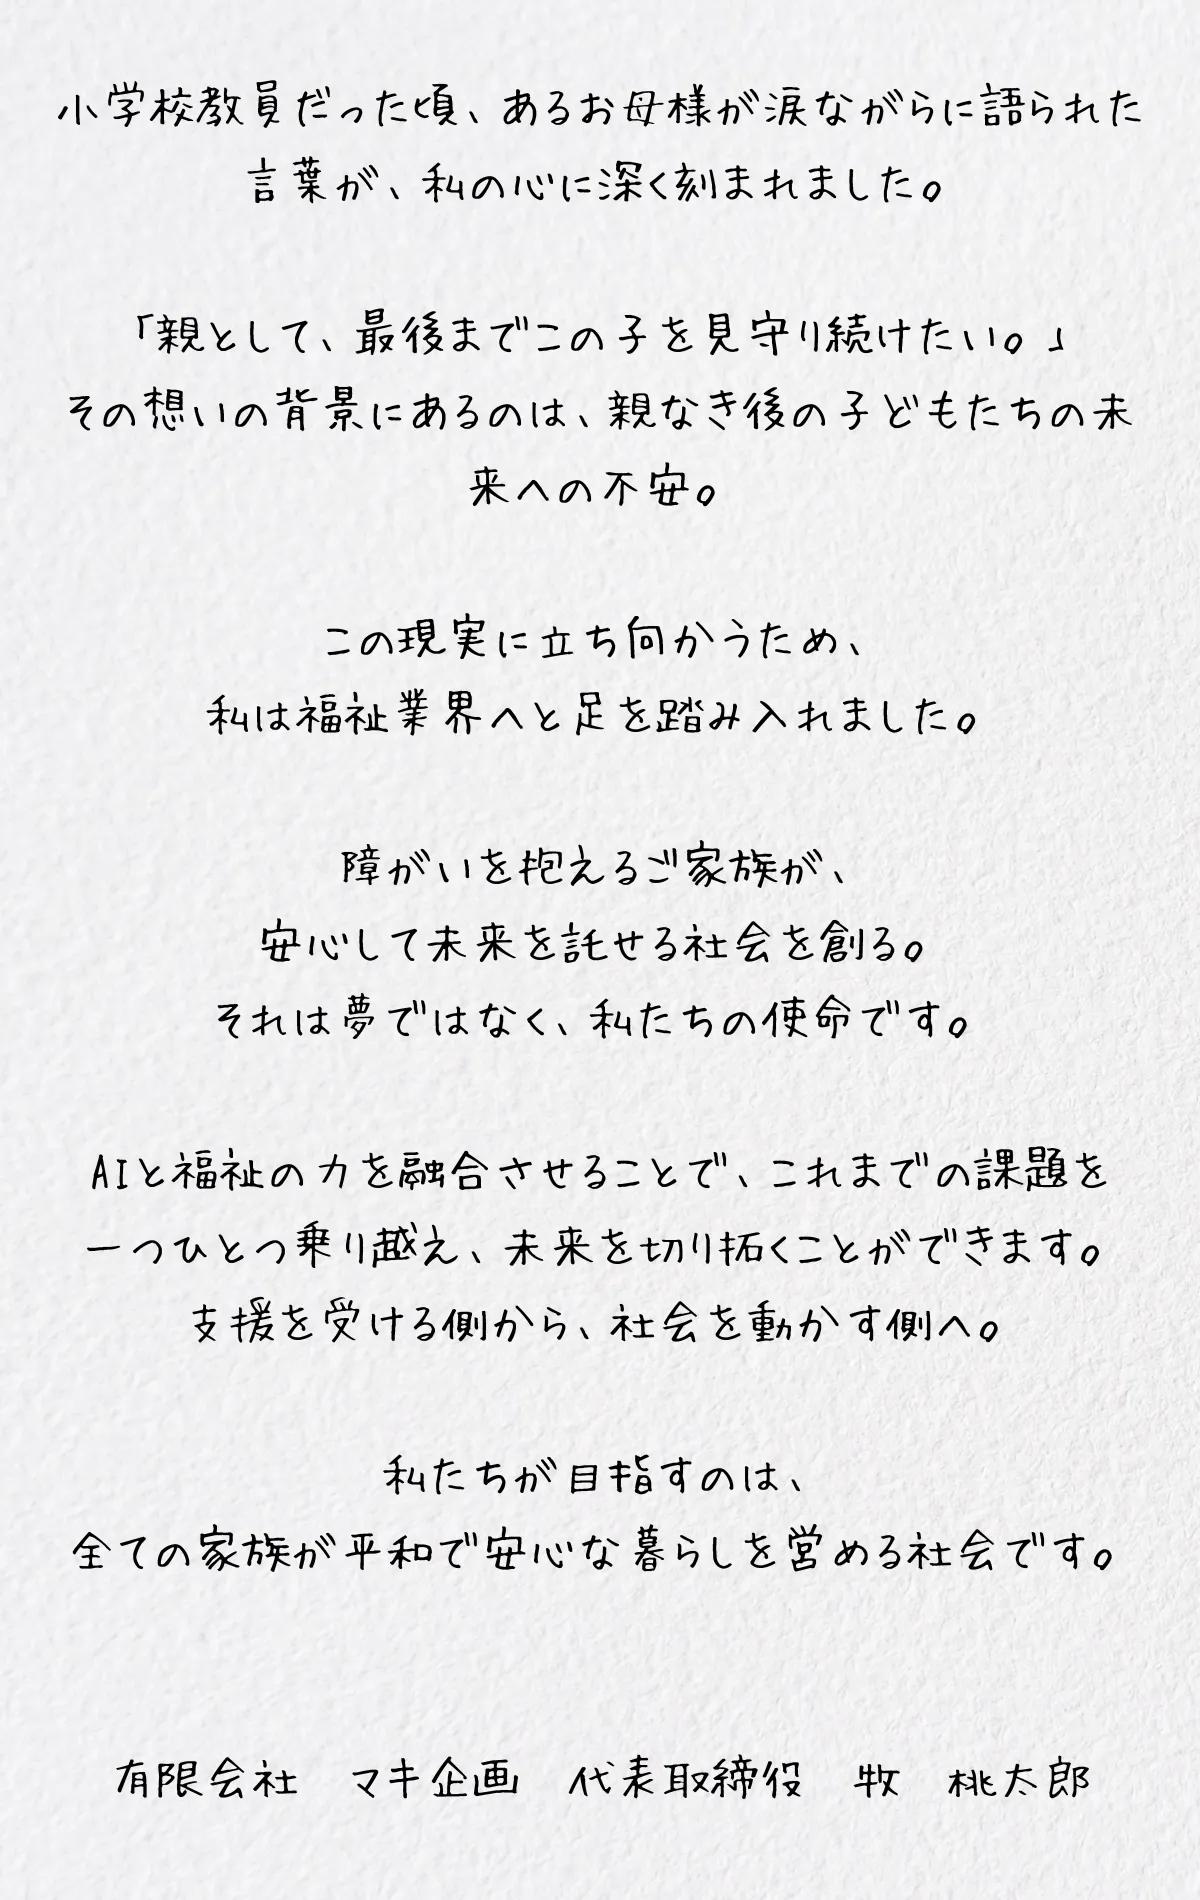 小学校教員だった頃、あるお母様が涙ながらに語られた
言葉が、私の心に深く刻まれました。
「親として、最後までこの子を見守り続けたい。」
その想いの背景にあるのは、親なき後の子どもたちの未
来への不安。
この現実に立ち向かうため、
私は福祉業界へと足を踏み入れました。
障がいを抱えるご家族が、
安心して未来を託せる社会を創る。
それは夢ではなく、私たちの使命です。
AIと福祉の力を融合させることで、これまでの課題を
一つひとつ乗り越え、未来を切り拓くことができます。
支援を受ける側から、社会を動かす側へ。
私たちが目指すのは、
全ての家族が平和で安心な暮らしを営める社会です。
有限会社　マキ企画　代表取締役　牧　桃太郎